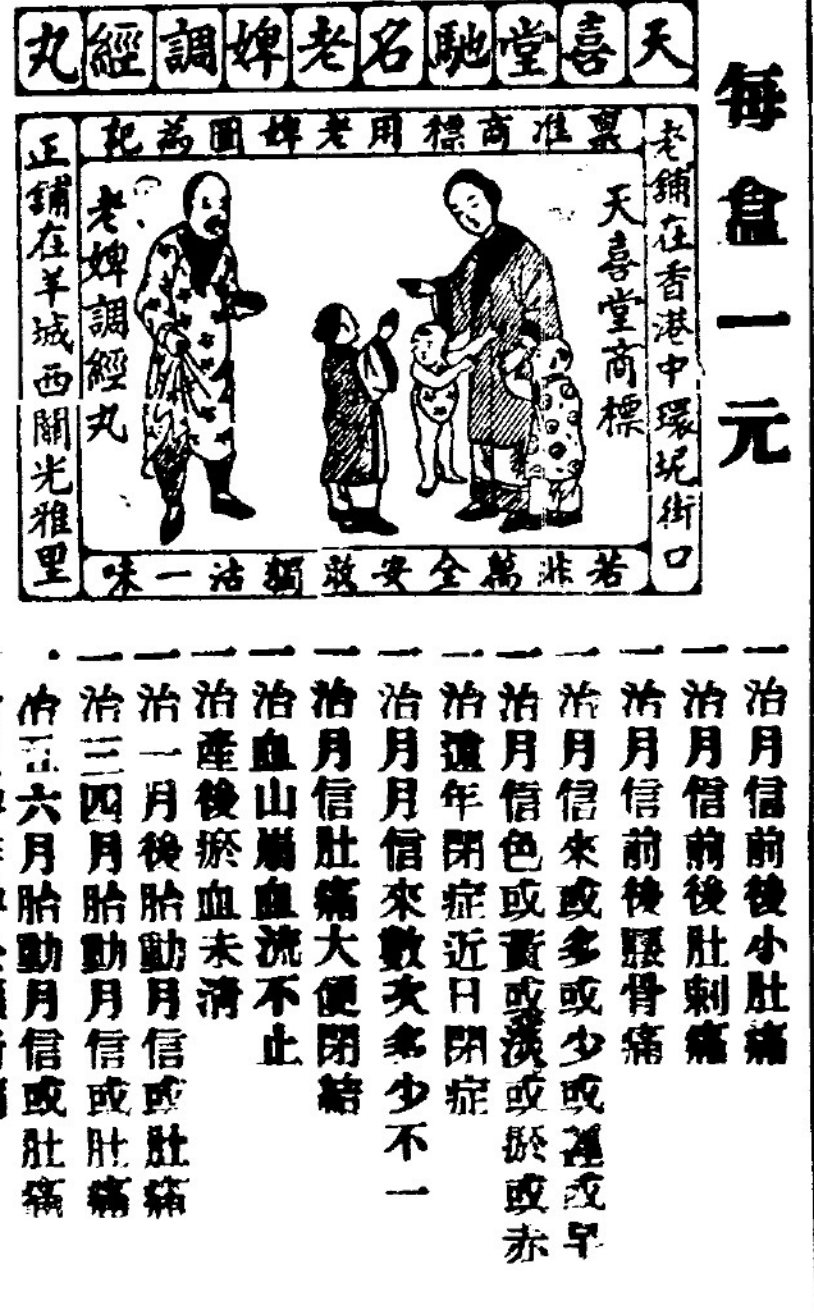 天喜堂馳名老婢調經丸
每盒一元
稟准商標用老婢圖為記
老舖在香港中環坭街口
天喜堂商標
老婢調經丸
正舖在羊城西關光雅里
若非萬全安敢獨沽一味
一治月信前後小肚痛
一治月信前後肚刺痛
一治月信前後腰骨痛
一治月信來或多或少或遲或早
一治月信色或黃或淡或瘀或赤
一治遠年閉症近日閉症
一治月月信來數次多少不一
一治月信肚痛大便閉結
一治血山崩血流不止
一治產後瘀血未清
一治一月後胎動月信或肚痛
一治三四月胎動月信或肚痛
一治五六月胎動月信或肚痛